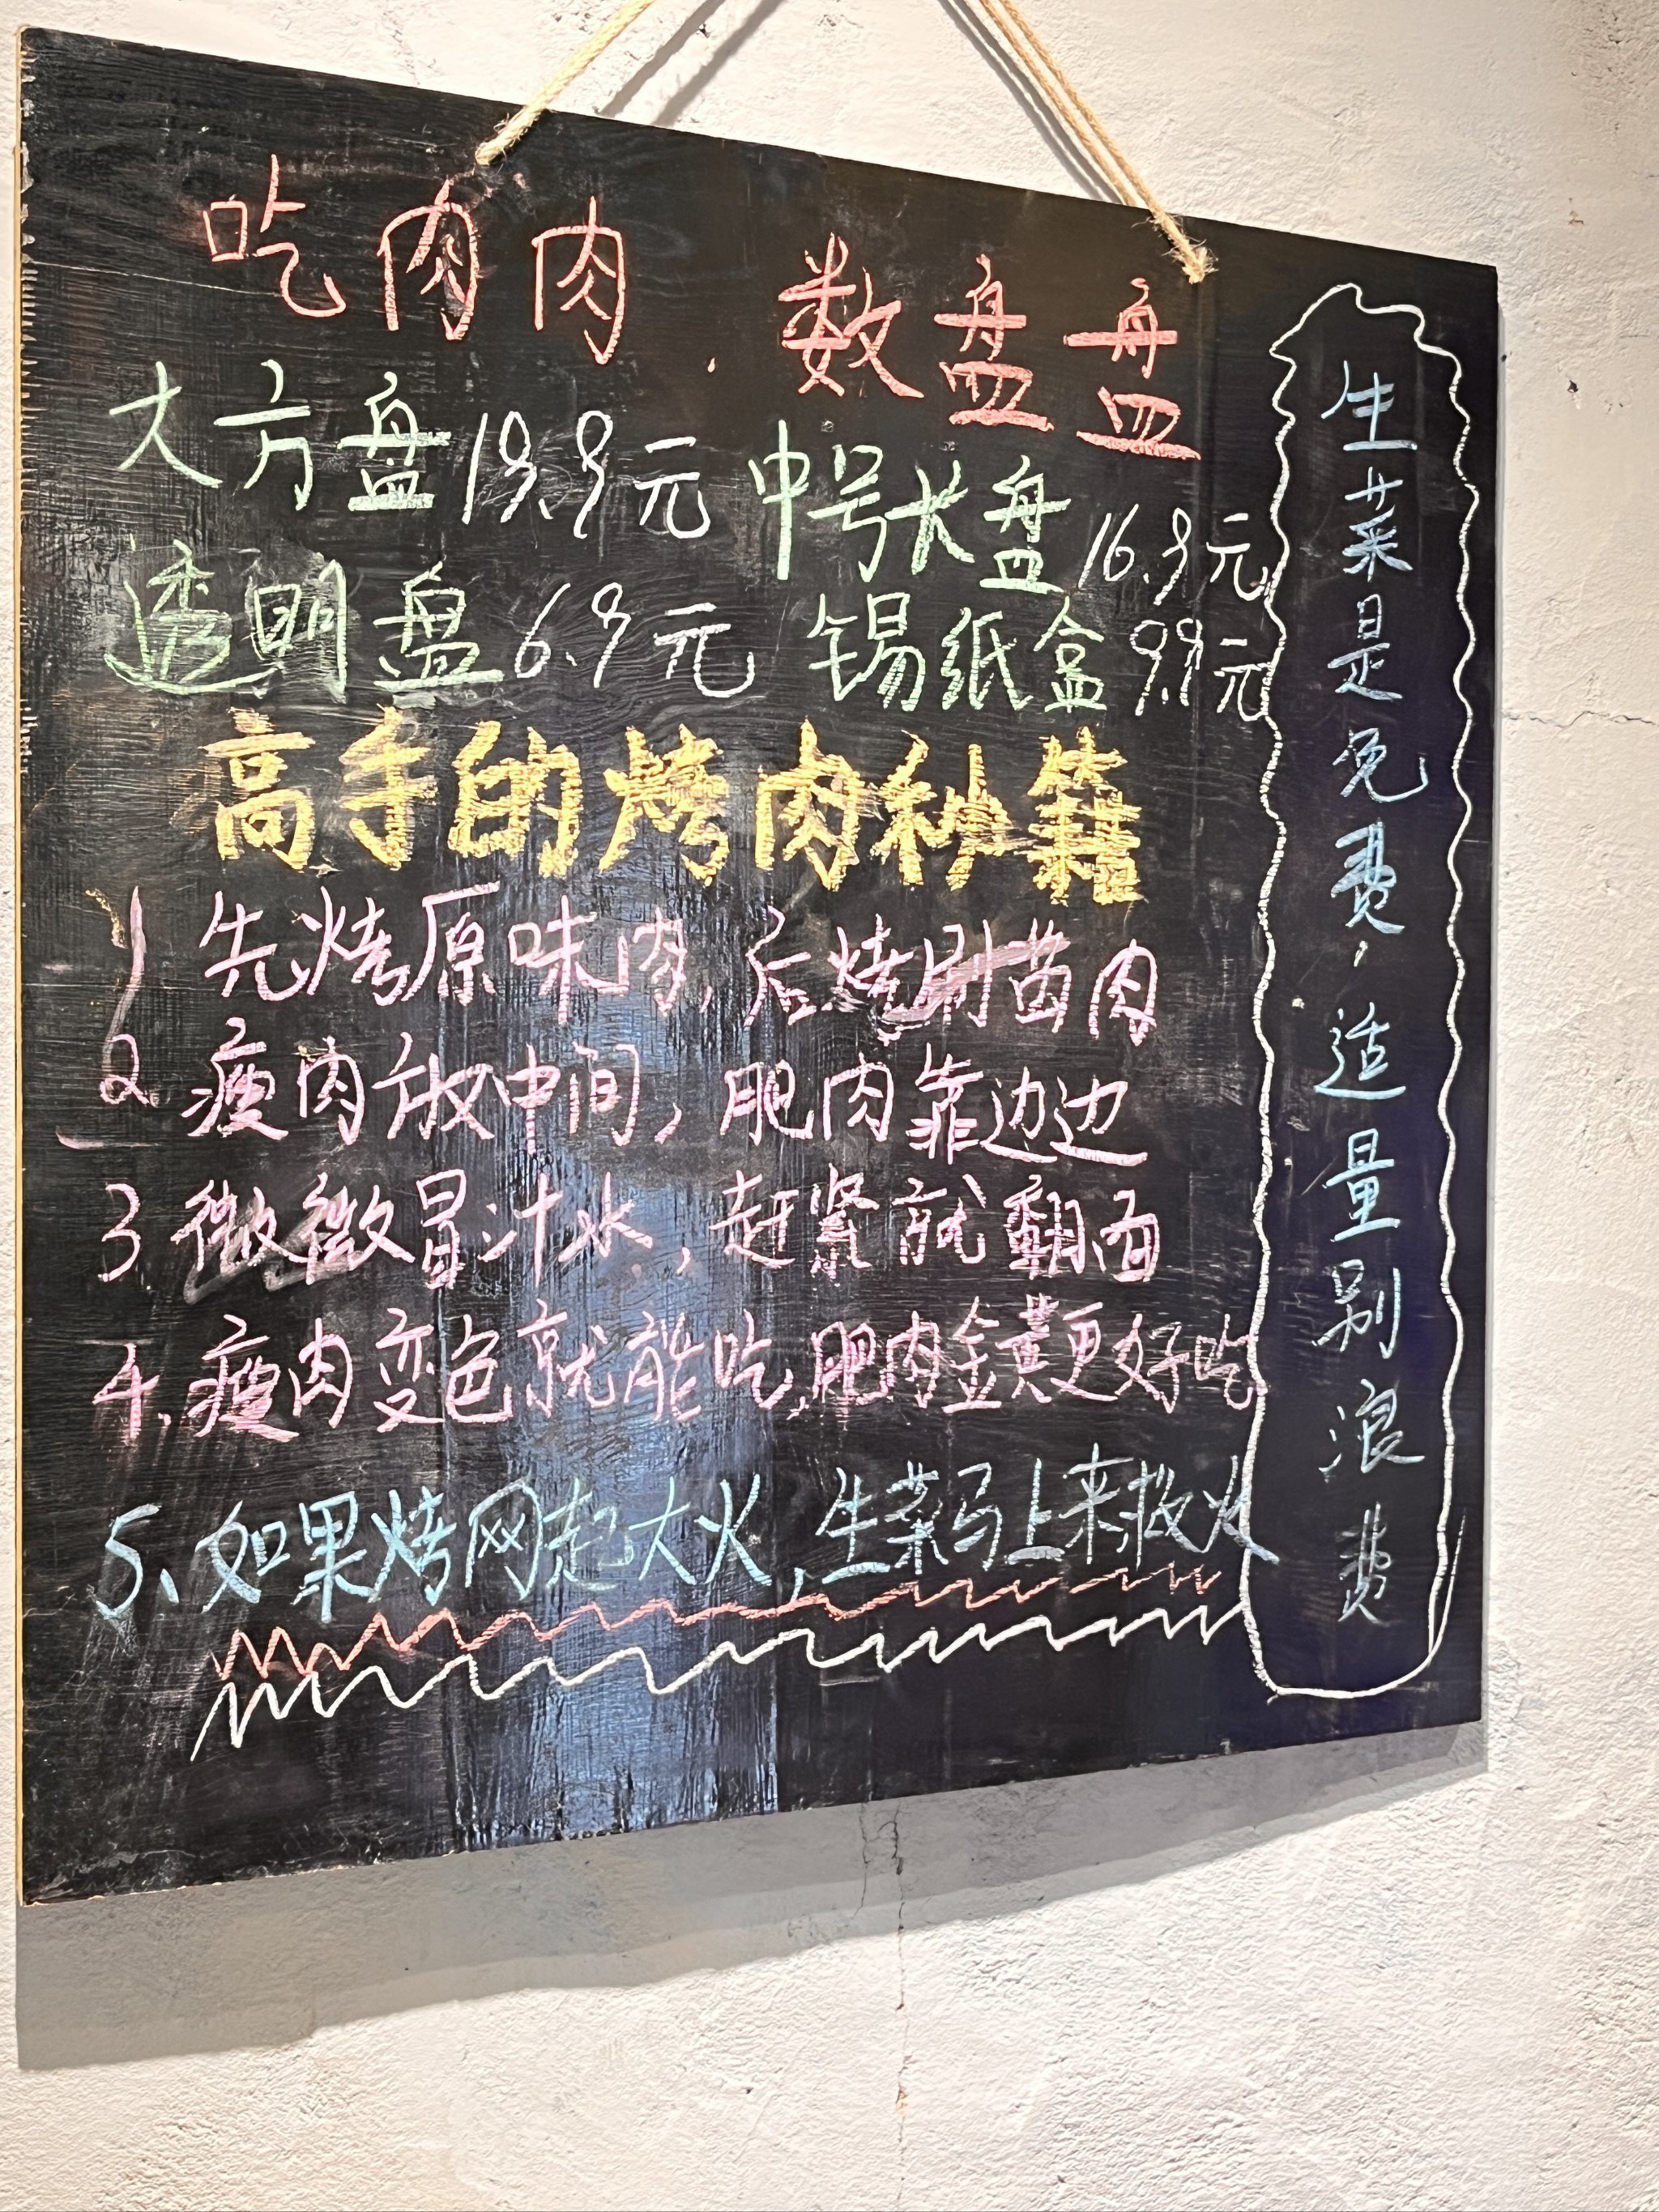 吃肉肉.数盘盘
大方盘19.9元 中号长盘16.9元
透明盘6.9元 锡纸盒9.9元
高手的烤肉秘籍
1 先烤原味肉,后烤刷酱肉
2. 瘦肉放中间,肥肉靠边边
3. 微微冒汁水,赶紧就翻面
4. 瘦肉变色就能吃,肥肉金黄更好吃
5、如果烤网起大火,生菜马上来救火
生菜是免费,适量别浪费